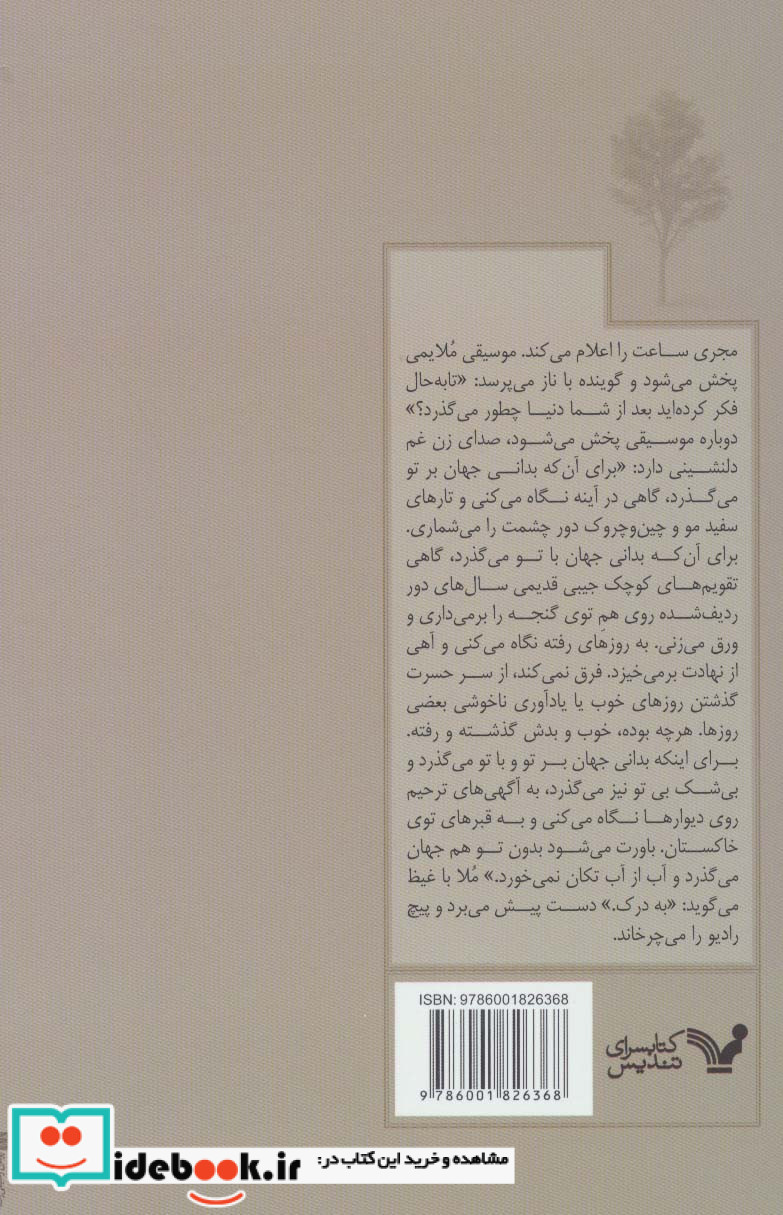 مجری ساعت را اعلام می‌کند. موسیقی مُلایمی
پخش می‌شود و گوینده با ناز می‌پرسد: «تابه‌حال
فکر کرده‌اید بعد از شما دنیا چطور می‌گذرد؟»
دوباره موسیقی پخش می‌شود، صدای زن غم
دلنشینی دارد: «برای آن‌که بدانی جهان بر تو
می‌گذرد، گاهی در آینه نگاه می‌کنی و تارهای
سفید مو و چین‌وچروک دور چشمت را می‌شماری.
برای آن‌که بدانی جهان با تو می‌گذرد، گاهی
تقویم‌های کوچک جیبی قدیمی سال‌های دور
ردیف‌شده روی همِ توی گنجه را برمی‌داری و
ورق می‌زنی. به روزهای رفته نگاه می‌کنی و آهی
از نهادت برمی‌خیزد. فرق نمی‌کند، از سر حسرت
گذشتن روزهای خوب یا یادآوری ناخوشی بعضی
روزها. هرچه بوده، خوب و بدش گذشته و رفته.
برای اینکه بدانی جهان بر تو و با تو می‌گذرد و
بی‌شک بی تو نیز می‌گذرد، به آگهی‌های ترحیم
روی دیوارها نگاه می‌کنی و به قبرهای توی
خاکستان. باورت می‌شود بدون تو هم جهان
می‌گذرد و آب از آب تکان نمی‌خورد.» مُلا با غیظ
می‌گوید: «به درک.» دست پیش می‌برد و پیچ
رادیو را می‌چرخاند.
ISBN: 9786001826368
9 786001 826368
کتابسرای
تندیس
مشاهده و خرید این کتاب در:
idebook.ir